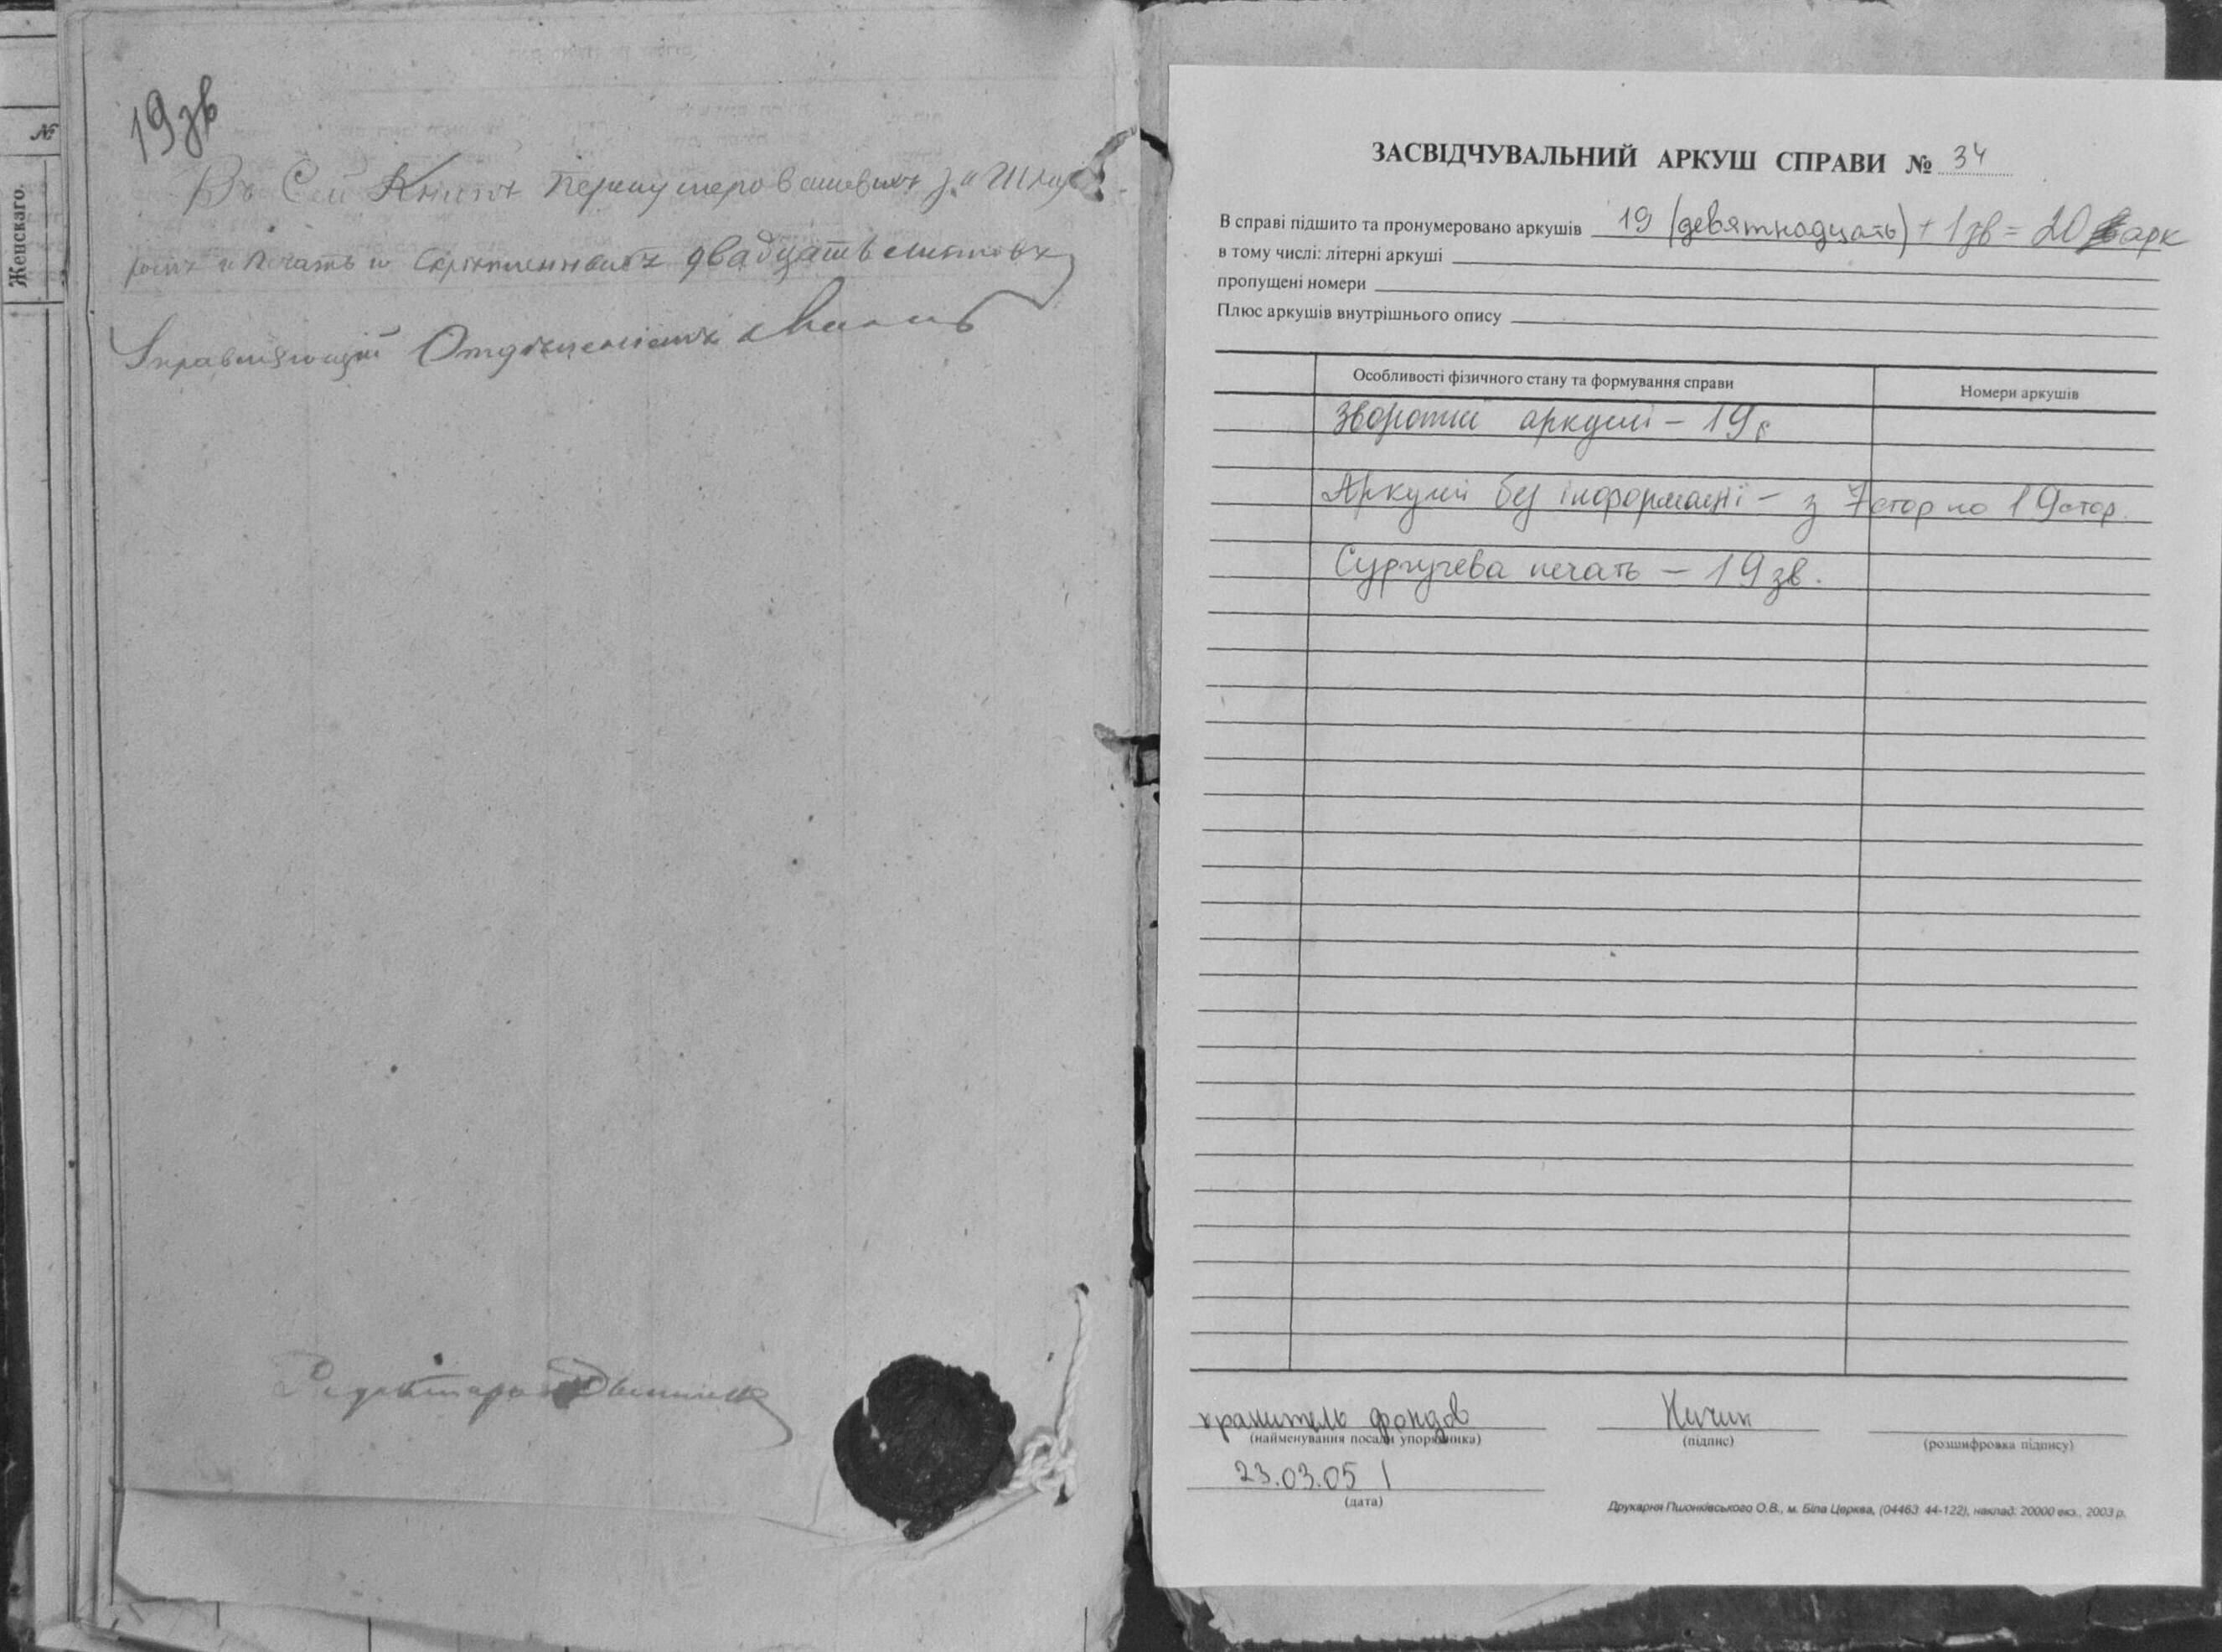 №
Женскаго.
19 зв
Въ Сей Книгѣ перенумерованныхъ за Шну
ромъ и печатью Скрѣпленныхъ двадцать листовъ
Управляющій Отдѣленіемъ
ЗАСВІДЧУВАЛЬНИЙ АРКУШ СПРАВИ № 34
В справі підшито та пронумеровано аркушів 19 (девятнадцать) + 1 зв = 20 арк
в тому числі: літерні аркуші
пропущені номери
Плюс аркушів внутрішнього опису
Особливості фізичного стану та формування справи Номери аркушів
Зворотні аркуші – 19
Аркуші без інформації – з 7 стор по 19 стор.
Сургучева печать – 19 зв.
хранитель фондов
(найменування посади упорядника) (підпис) (розшифровка підпису)
23.03.05
(дата)
Друкарня Пшонківського О.В., м. Біла Церква, (04463 44-122), наклад: 20000 екз., 2003 р.